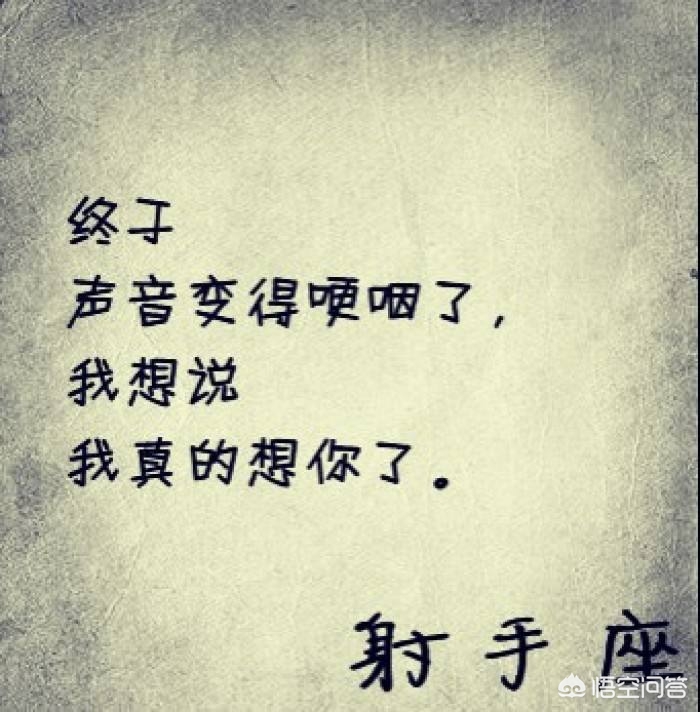 终于
声音变得哽咽了,
我想说
我真的想你了。
射手座
悟空问答